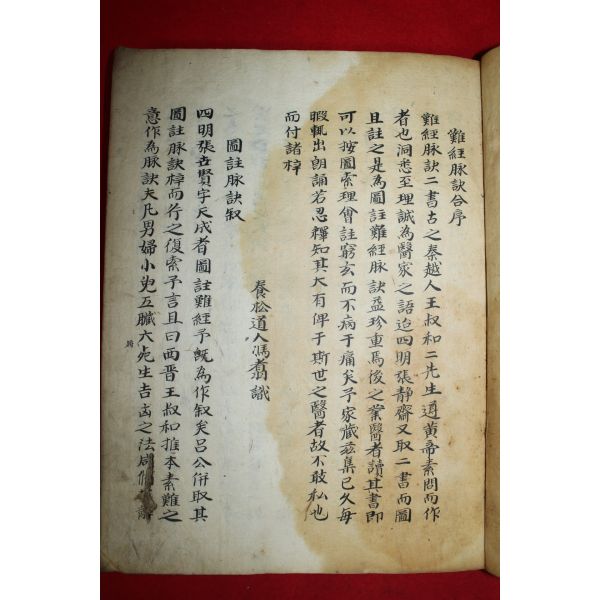 難經脉訣合序
難經脉訣二書古之秦越人王叔和二先生遵黃帝素問而作
者也洞悉至理誠為醫家之語迨四明張靜齋又取二書而圖
且註之是為圖註難經脉訣益珍重焉後之業醫者讀其書即
可以按圖索理會註窮玄而不病于痛矣予家藏茲集已久每
暇輒出朗誦若忍釋知其大有俾于斯世之醫者故不敢私也
而付諸梓
養松道人馮 識
圖註脉訣叙
四明張世賢字天成者圖註難經予旣為作叙矣呂公倂取其
圖註脉訣梓而行之復索予言且曰西晋王叔和推本素難之
意作為脉訣夫凡男婦小兒五臟六 生吉凶之法咸